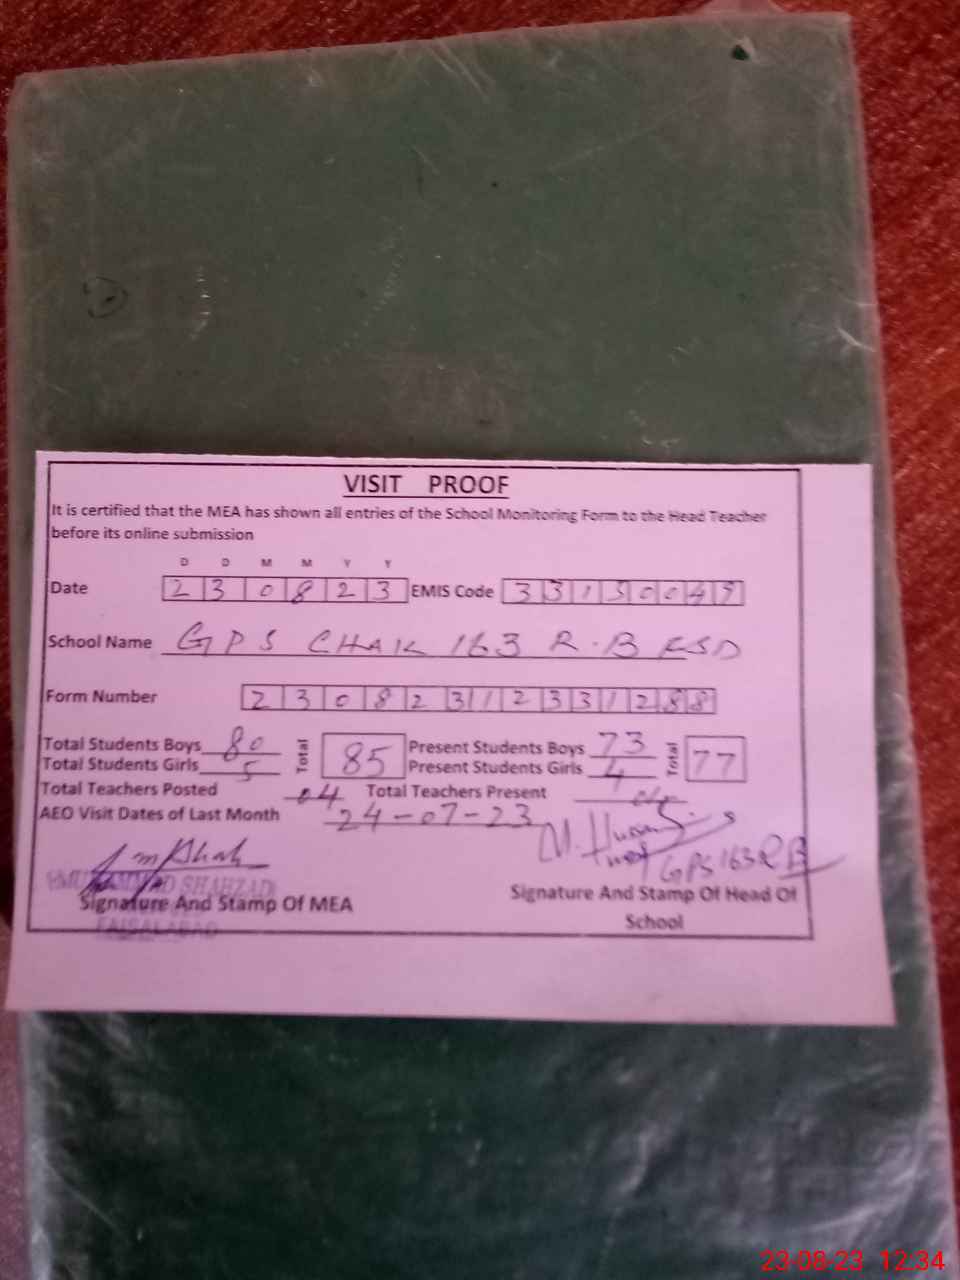 VISIT PROOF
It is certified that the MEA has shown all entries of the School Monitoring Form to the Head Teacher
before its online submission
D D M M Y Y
Date 230823 EMIS Code 33130049
School Name GPS CHAK 163 R.B FSD
Form Number 23082312331288
Total Students Boys 80 Total 85 Present Students Boys 73 Total 77
Total Students Girls 5 Present Students Girls 4
Total Teachers Posted 04 Total Teachers Present 04
AEO Visit Dates of Last Month 24-07-23
GPS 163 RB
MUHAMMAD SHAHZAD
Signature And Stamp Of MEA Signature And Stamp Of Head Of
School
FAISALABAD
23-08-23 12:34